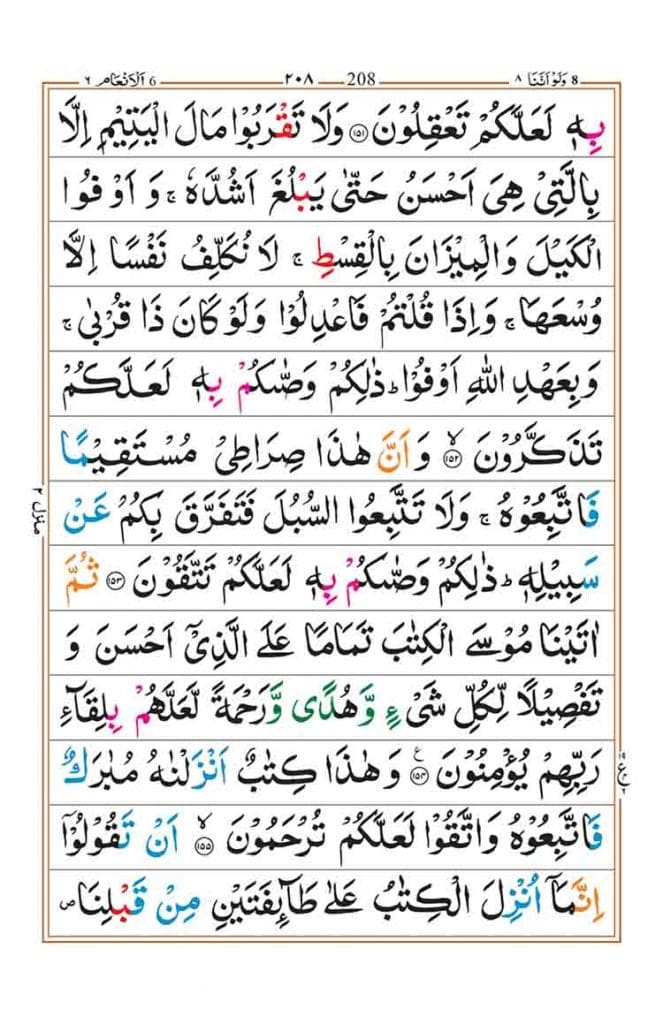 8 وَلَوْ اَنَّنَا ٨ 208 ٢٠٨ 6 اَلْاَنْعَام ٦
بِهٖ لَعَلَّكُمْ تَعْقِلُوْنَ ۝۱۵۱ وَلَا تَقْرَبُوْا مَالَ الْيَتِيْمِ اِلَّا
بِالَّتِيْ هِيَ اَحْسَنُ حَتّٰى يَبْلُغَ اَشُدَّهٗ ۚ وَ اَوْفُوا
الْكَيْلَ وَالْمِيْزَانَ بِالْقِسْطِ ۚ لَا نُكَلِّفُ نَفْسًا اِلَّا
وُسْعَهَا ۚ وَاِذَا قُلْتُمْ فَاعْدِلُوْا وَلَوْ كَانَ ذَا قُرْبٰى ۚ
وَبِعَهْدِ اللّٰهِ اَوْفُوْا ؕ ذٰلِكُمْ وَصّٰىكُمْ بِهٖ لَعَلَّكُمْ
تَذَكَّرُوْنَ ۝۱۵۲ۙ وَ اَنَّ هٰذَا صِرَاطِيْ مُسْتَقِيْمًا
فَاتَّبِعُوْهُ ۚ وَلَا تَتَّبِعُوا السُّبُلَ فَتَفَرَّقَ بِكُمْ عَنْ
سَبِيْلِهٖ ؕ ذٰلِكُمْ وَصّٰىكُمْ بِهٖ لَعَلَّكُمْ تَتَّقُوْنَ ۝۱۵۳ ثُمَّ
اٰتَيْنَا مُوْسَى الْكِتٰبَ تَمَامًا عَلَى الَّذِيْٓ اَحْسَنَ وَ
تَفْصِيْلًا لِّكُلِّ شَيْءٍ وَّهُدًى وَّرَحْمَةً لَّعَلَّهُمْ بِلِقَآءِ
رَبِّهِمْ يُؤْمِنُوْنَ ۝۱۵۴ع وَهٰذَا كِتٰبٌ اَنْزَلْنٰهُ مُبٰرَكٌ
فَاتَّبِعُوْهُ وَاتَّقُوْا لَعَلَّكُمْ تُرْحَمُوْنَ ۝۱۵۵ۙ اَنْ تَقُوْلُوْٓا
اِنَّمَآ اُنْزِلَ الْكِتٰبُ عَلٰى طَآئِفَتَيْنِ مِنْ قَبْلِنَا ۪
منزل ٢